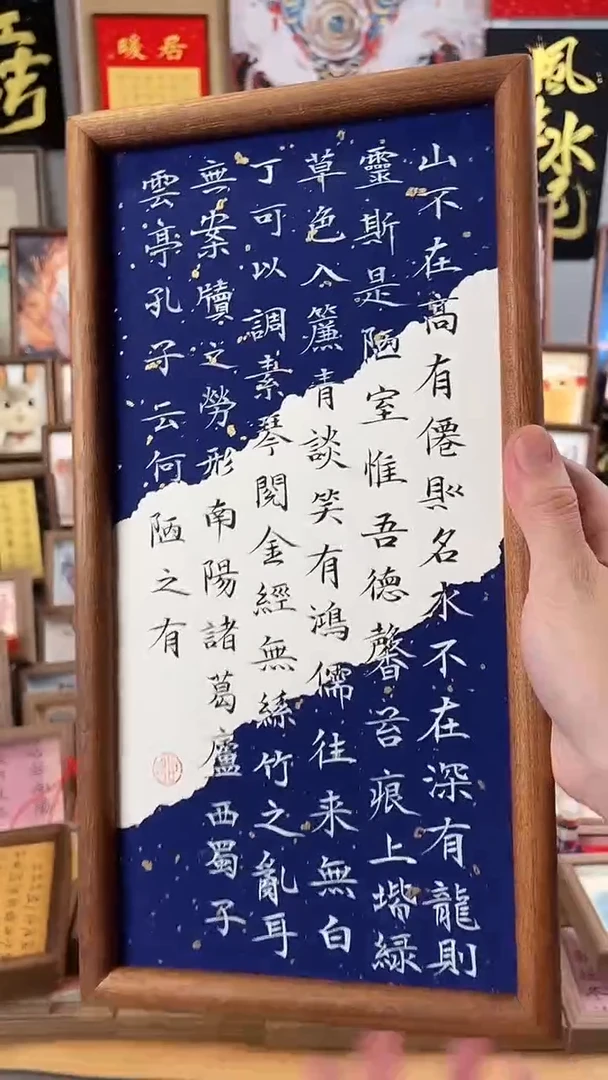 山不在高有僊則名水不在深有龍則
靈斯是陋室惟吾德馨苔痕上堦綠
草色入簾青談笑有鴻儒往来無白
丁可以調素琴閱金經無絲竹之亂耳
無案牘之勞形南陽諸葛廬西蜀子
雲亭孔子云何陋之有
暖居